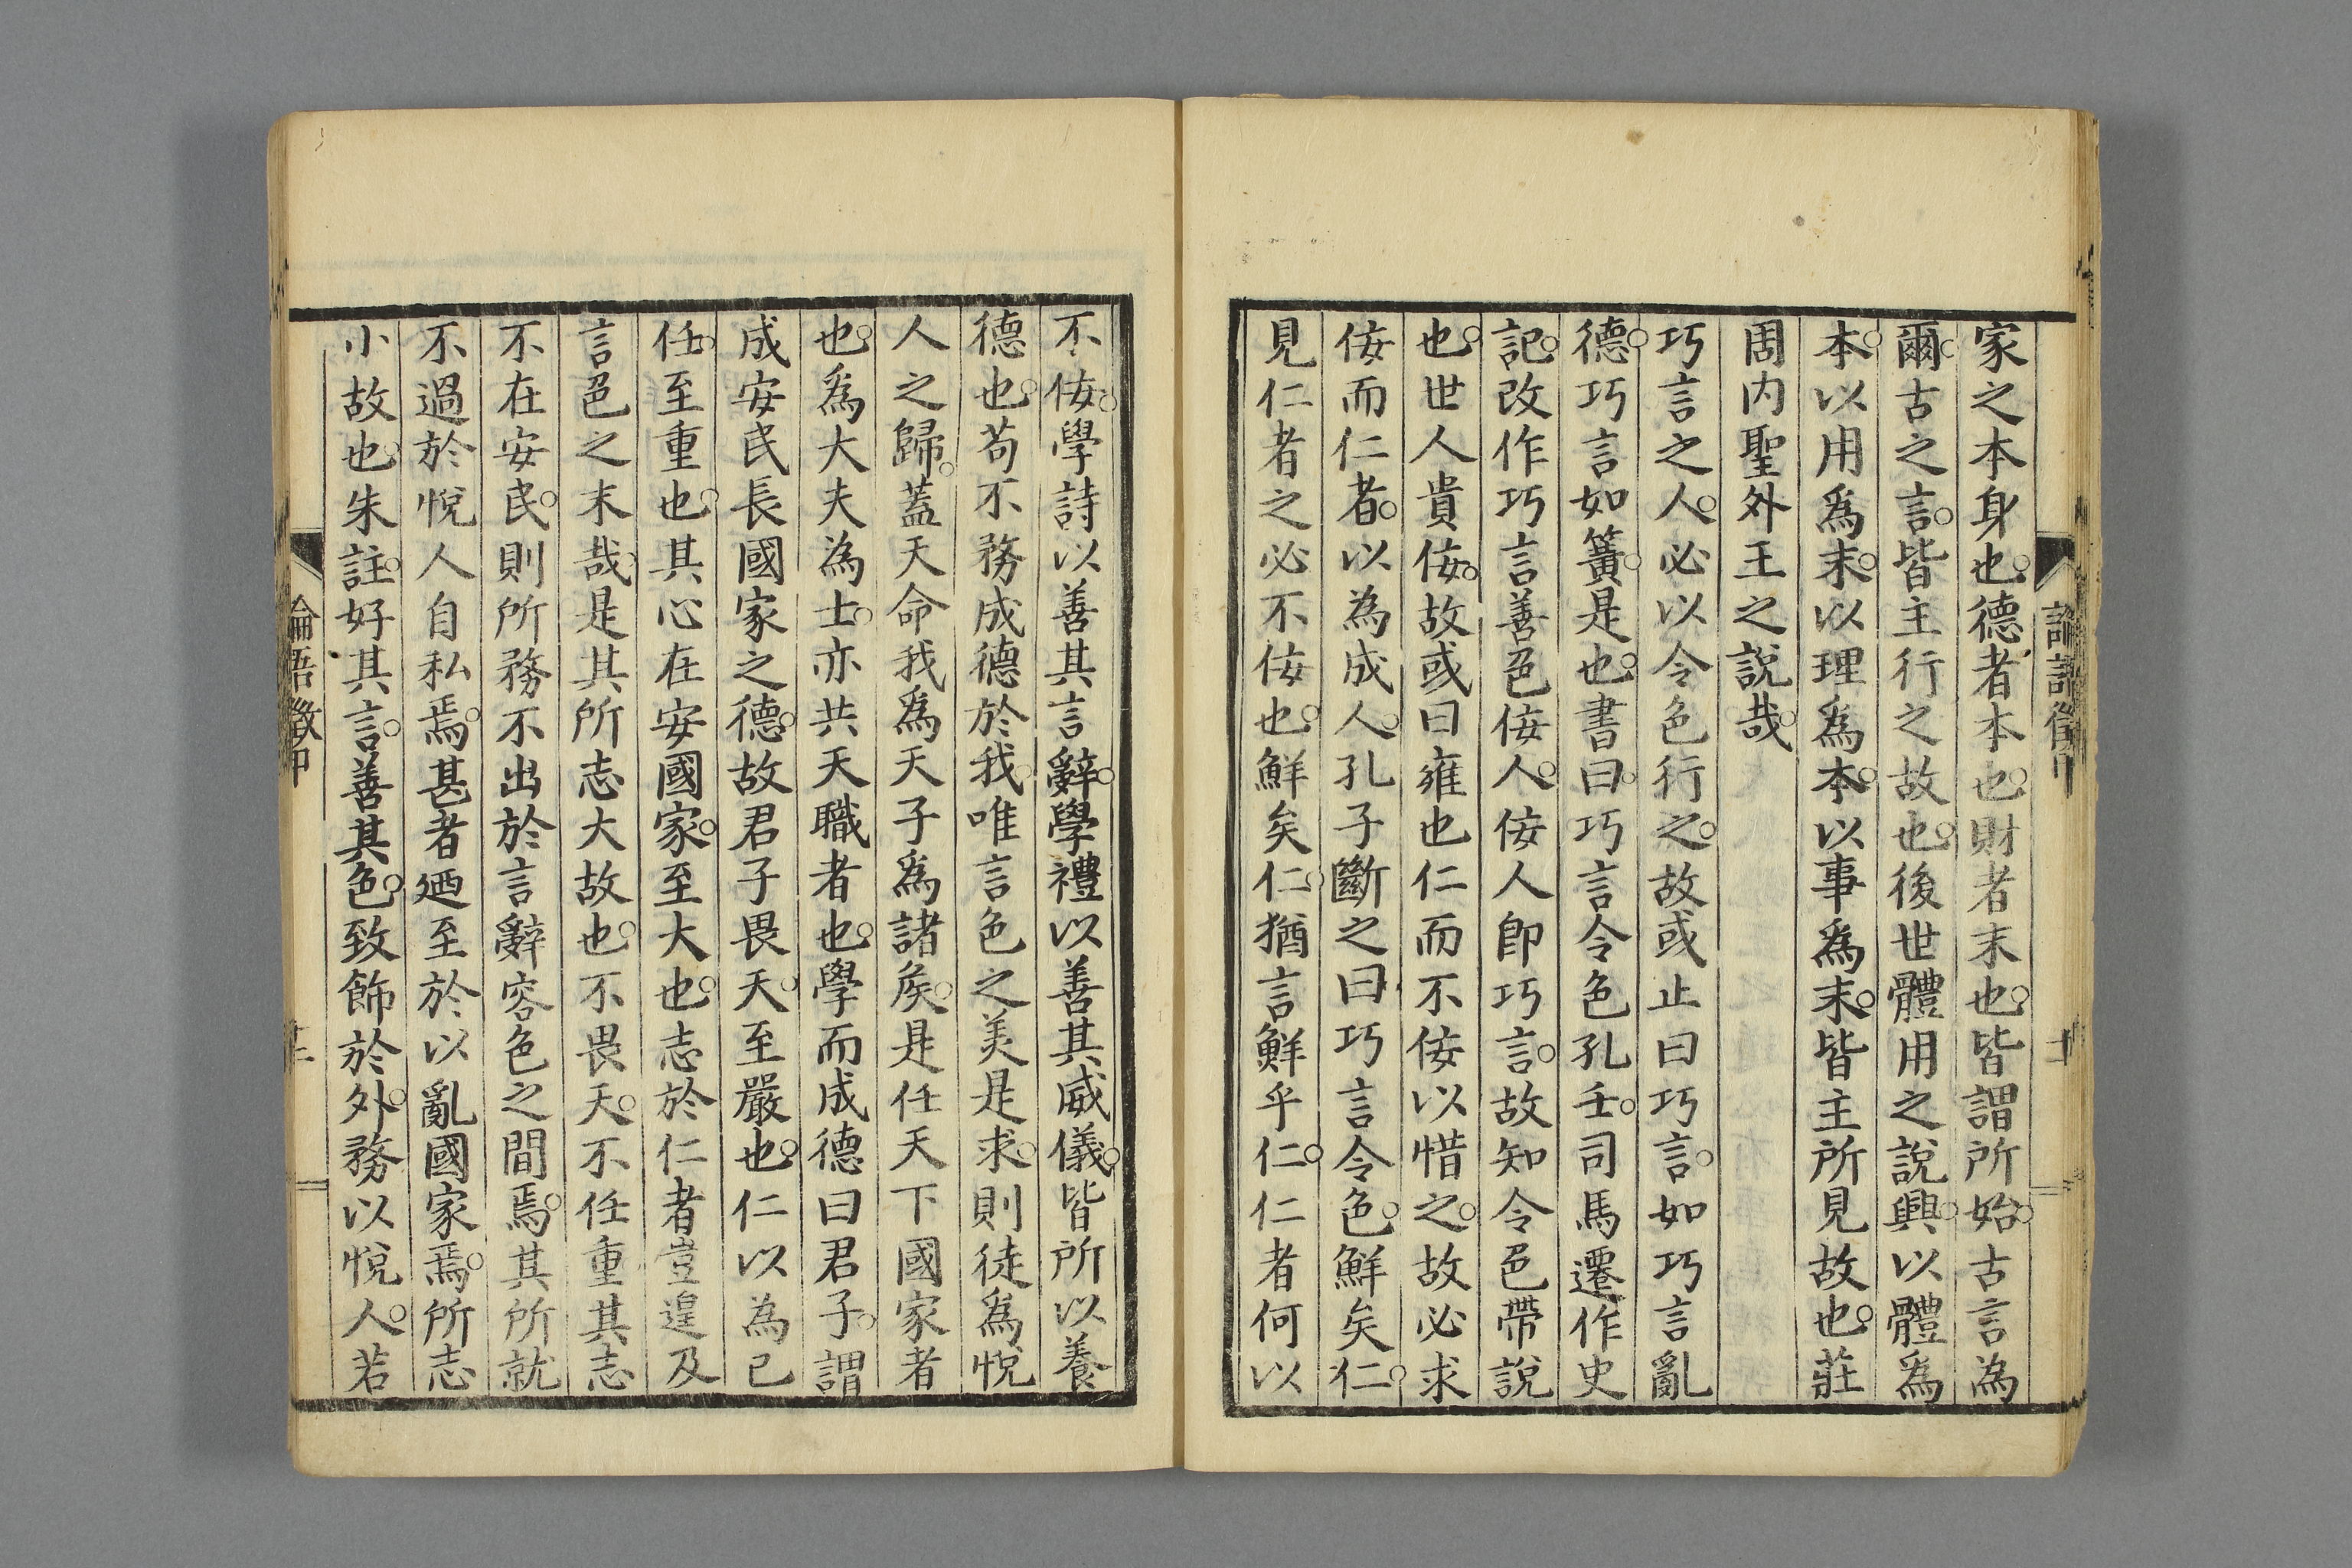 家之本身也。德者本也。財者末也。皆謂所始。古言為
爾。古之言。皆主行之故也。後世體用之說興。以體爲
本。以用爲末。以理爲本。以事爲末。皆主所見故也。莊
周内聖外王之說哉。
巧言之人。必以令色行之。故或止曰巧言。如巧言亂
德。巧言如簧。是也。書曰。巧言令色孔壬。司馬遷作史
記。改作巧言善色佞人。佞人卽巧言。故知令色帶說
也。世人貴佞。故或曰雍也仁而不佞以惜之。故必求
佞而仁者。以為成人。孔子斷之曰巧言令色。鮮矣仁。
見仁者之必不佞也。鮮矣仁。猶言鮮乎仁。仁者何以
論語徵甲
十一
不佞。學詩以善其言辭。學禮以善其威儀。皆所以養
德也。苟不務成德於我。唯言色之美是求。則徒爲悅
人之歸。蓋天命我爲天子爲諸矦。是任天下國家者
也。爲大夫為士。亦共天職者也。學而成德曰君子。謂
成安民長國家之德。故君子畏天。至嚴也。仁以為己
任。至重也。其心在安國家。至大也。志於仁者豈遑及
言色之末哉。是其所志大故也。不畏天。不任重。其志
不在安民。則所務不出於言辭容色之間焉。其所就
不過於悅人自私焉。甚者廼至於以亂國家焉。所志
小故也。朱註。好其言。善其色。致飾於外。務以悅人。若
論語徵甲
十二